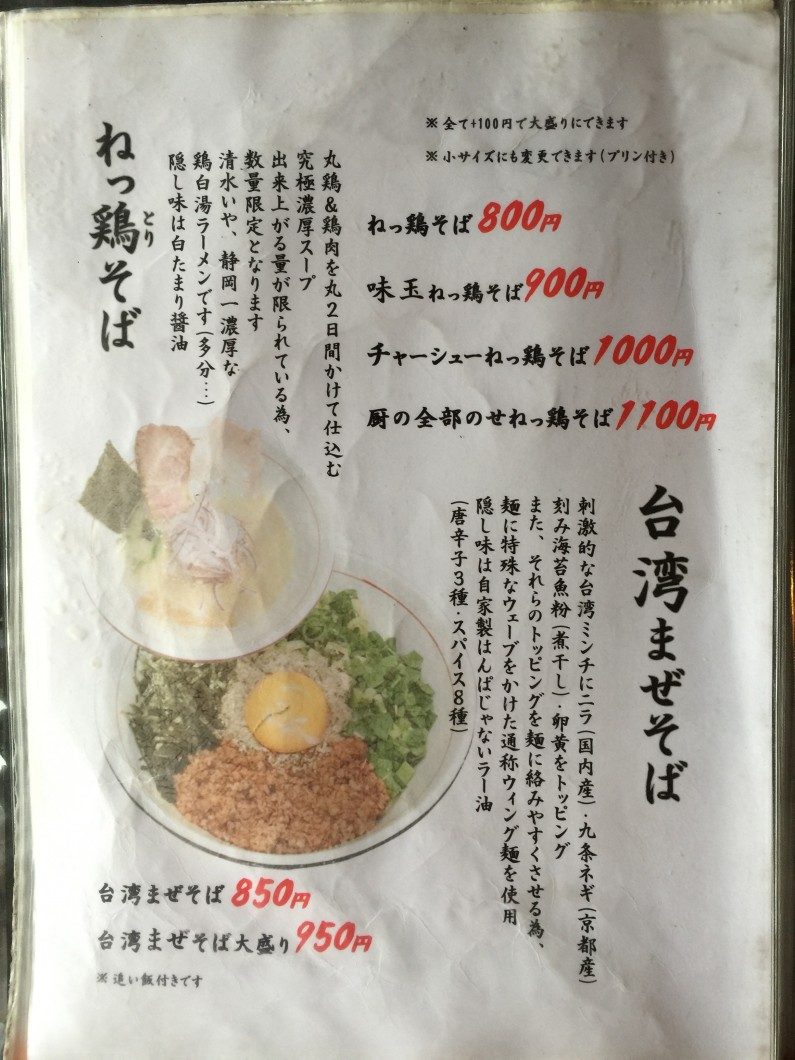 ※全て+100円で大盛りにできます
※小サイズにも変更できます(プリン付き)
ねっ鶏そば
とり
丸鶏&鶏肉を丸2日間かけて仕込む
究極濃厚スープ
出来上がる量が限られている為、
数量限定となります
清水いや、静岡一濃厚な
鶏白湯ラーメンです(多分…)
隠し味は白たまり醤油
ねっ鶏そば800円
味玉ねっ鶏そば900円
チャーシューねっ鶏そば1000円
厨の全部のせねっ鶏そば1100円
台湾まぜそば
刺激的な台湾ミンチにニラ(国内産)・九条ネギ(京都産)
刻み海苔魚粉(煮干し)・卵黄をトッピング
また、それらのトッピングを麺に絡みやすくさせる為、
麺に特殊なウェーブをかけた通称ウィング麺を使用
隠し味は自家製はんぱじゃないラー油
(唐辛子3種・スパイス8種)
台湾まぜそば850円
台湾まぜそば大盛り950円
※追い飯付きです